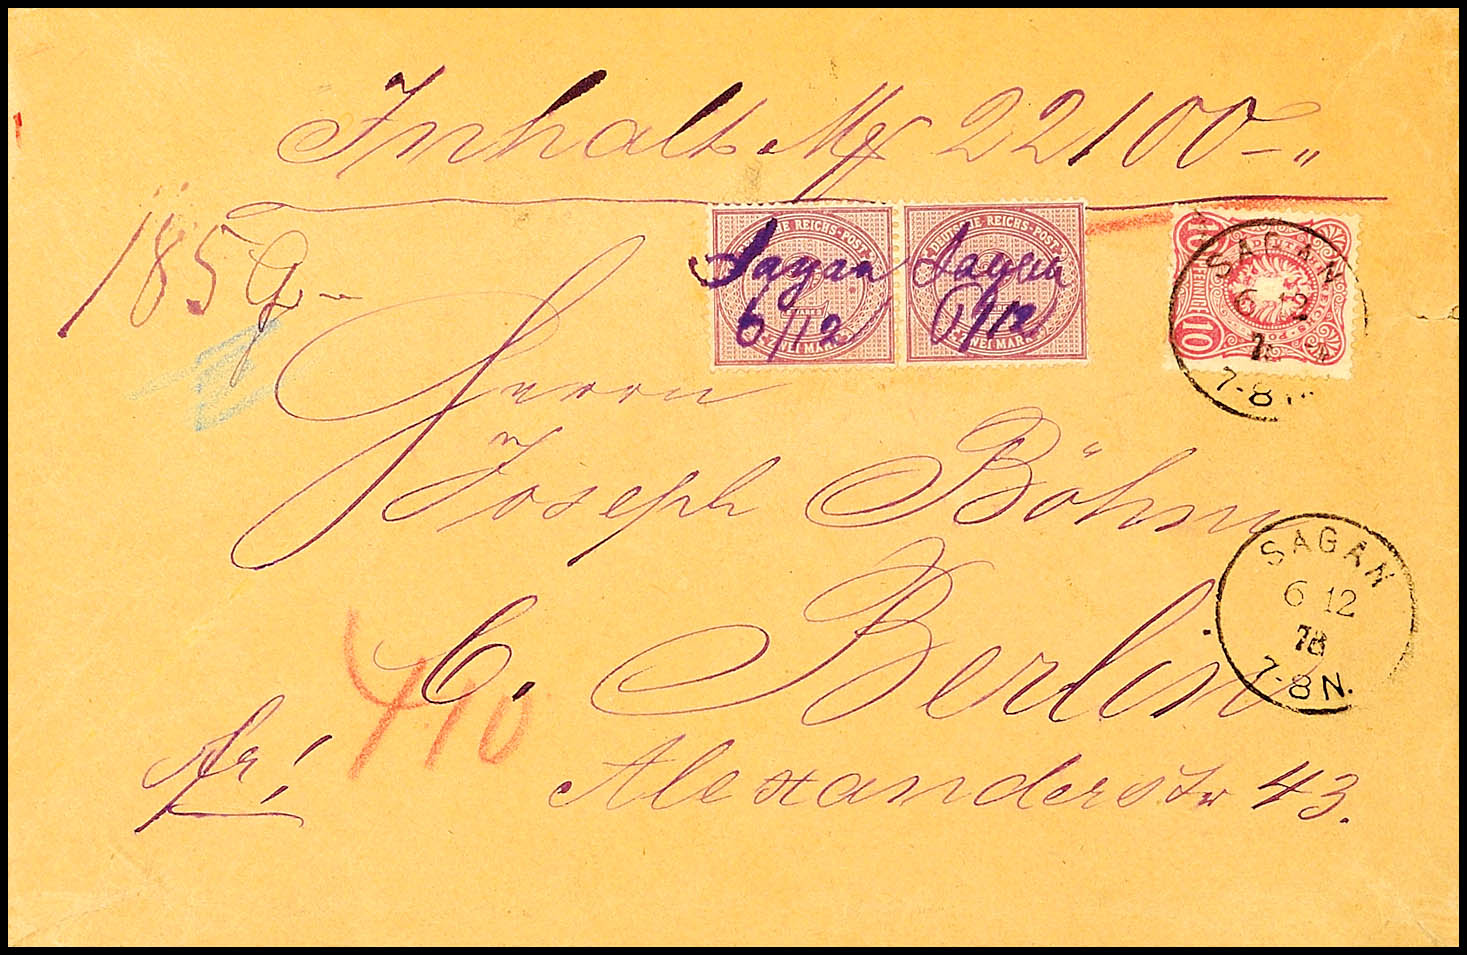 Inhalt Mk 22100 – „
185 g
DEUTSCHE REICHS-POST
Sagan
6/12
2
MARK
ZWEI MARK
DEUTSCHE REICHS-POST
Sagan
6/12
ZWEI MARK
10
PFENNIG
10
SAGAN
6 12
7-8 N.
Herrn
Joseph Böhm
C. Berlin
SAGAN
6 12
78
7-8 N.
410
fr!
Alexanderstr 43.